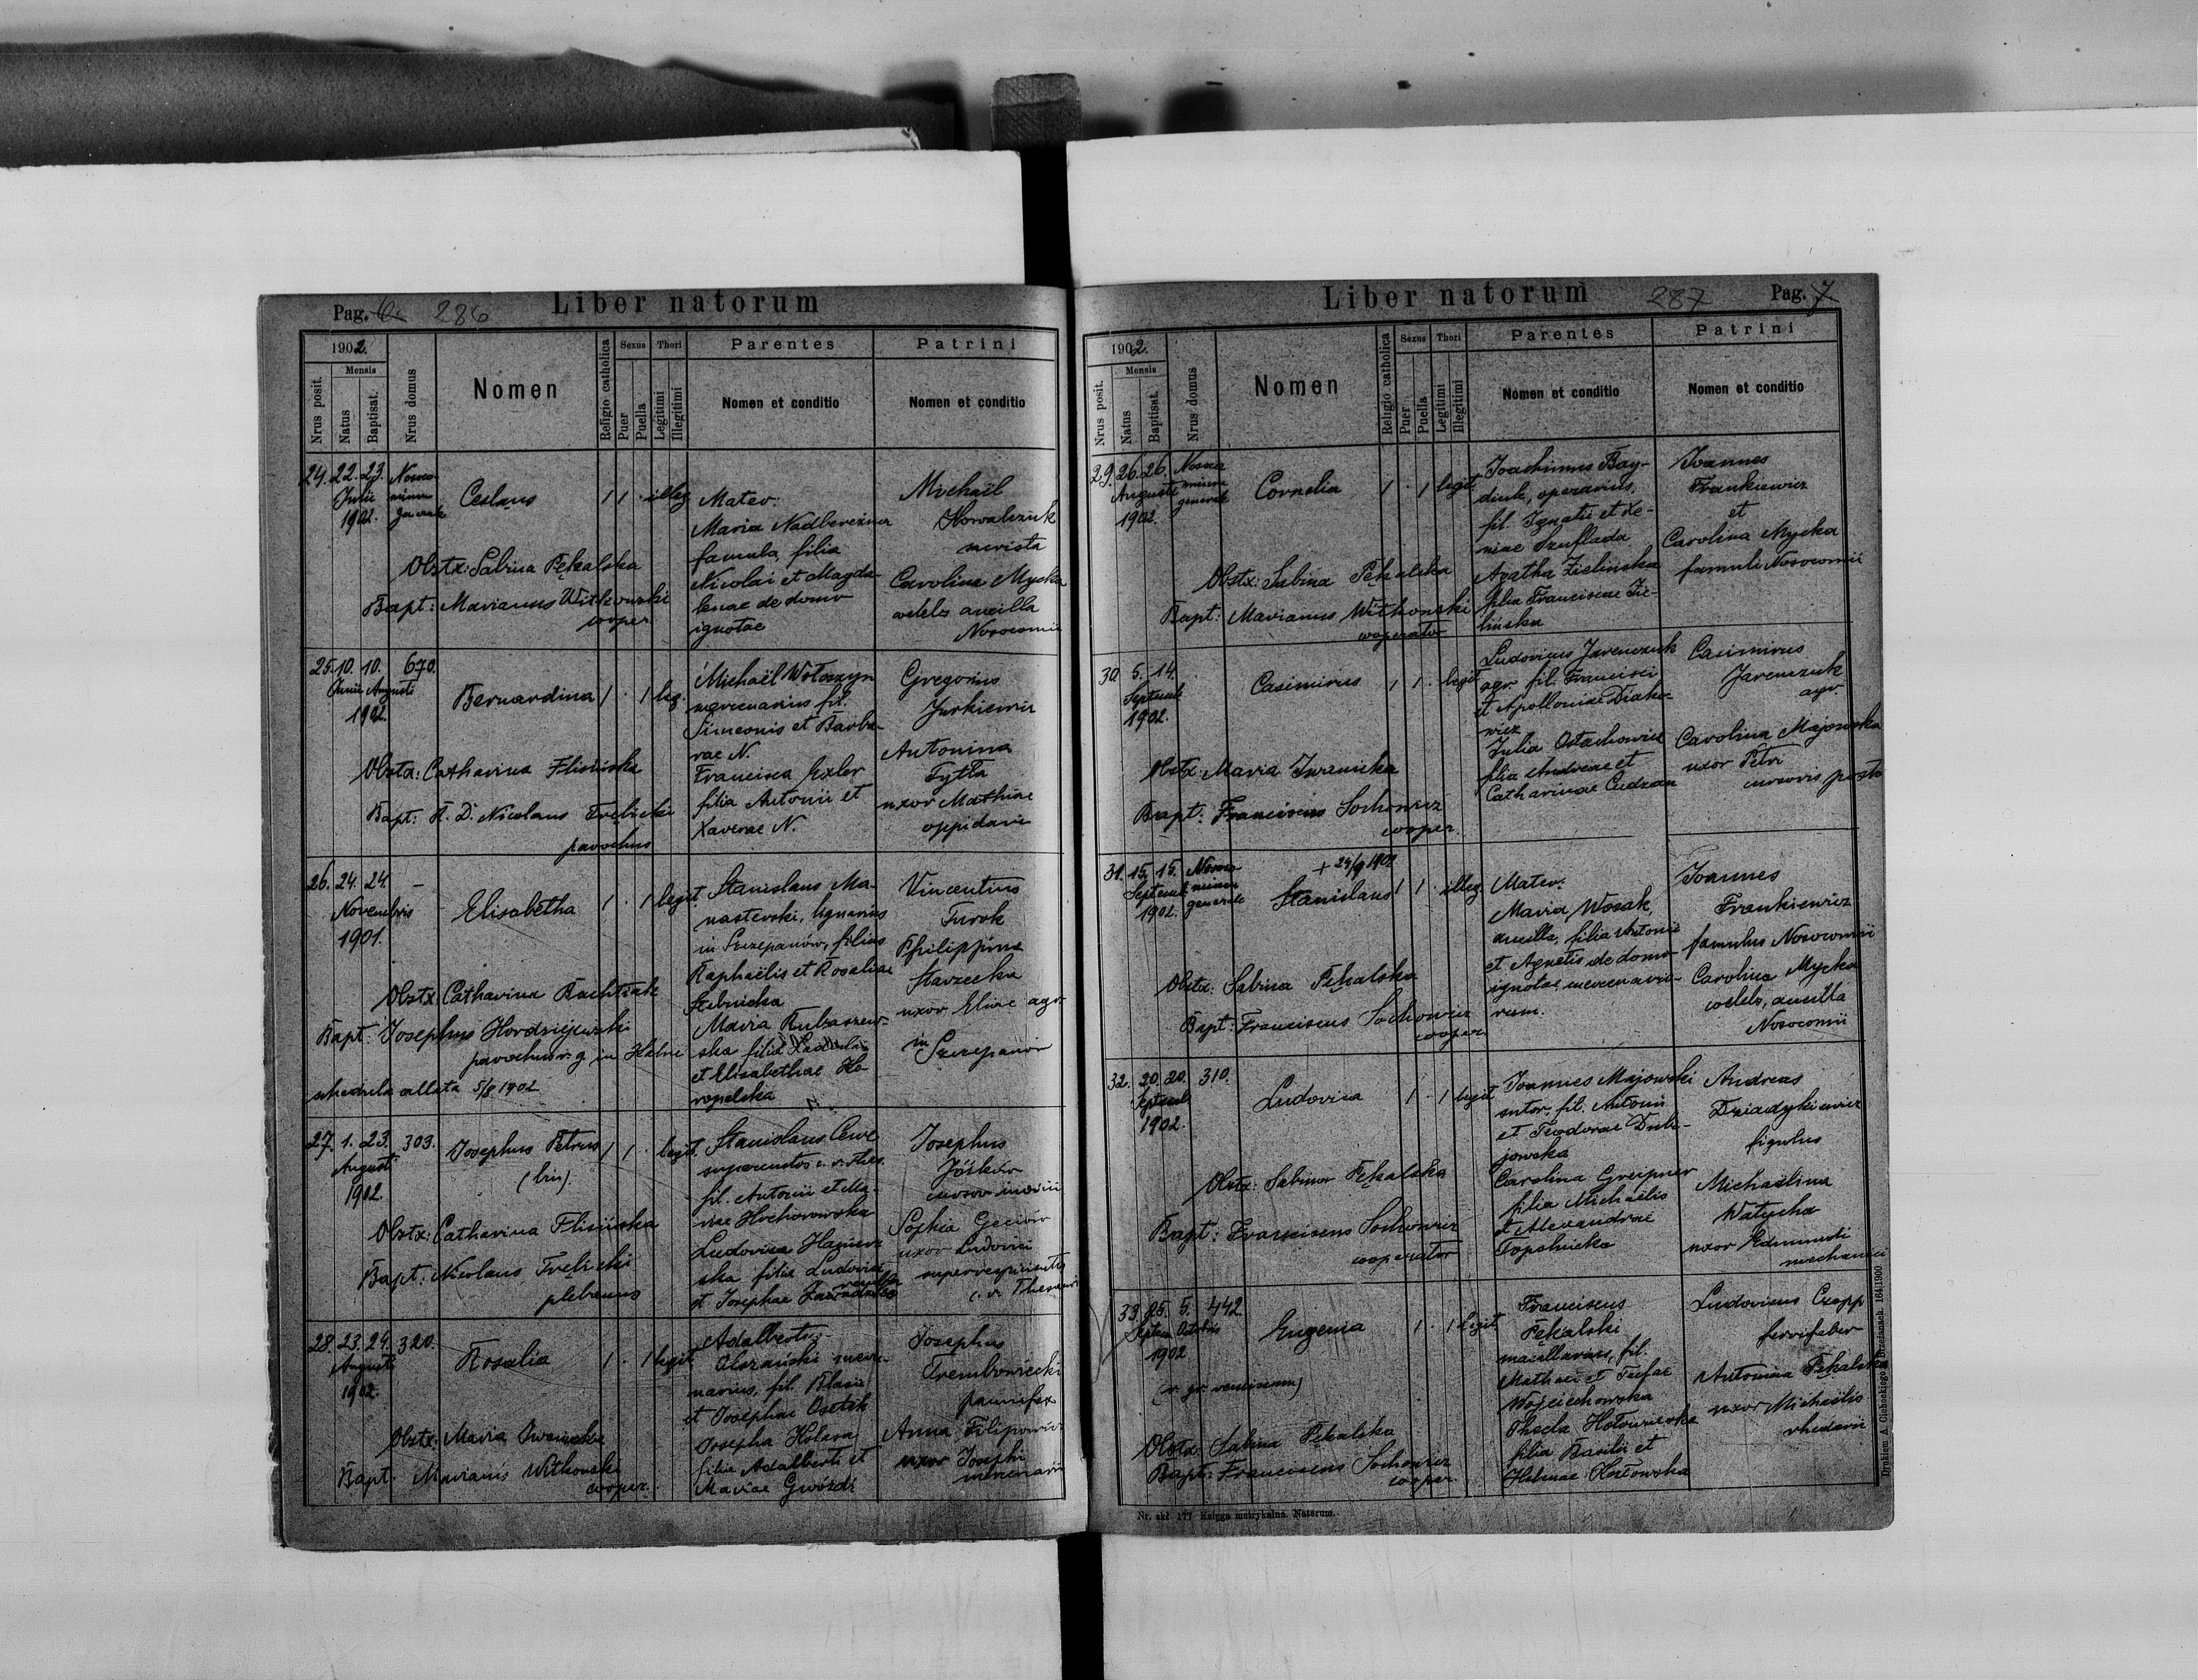 Pag. 6. 286 Liber natorum
1902. Sexus Thori Parentes Patrini
Mensis
Nrus posit. Natus Baptisat. Nrus domus Nomen Religio catholica Puer Puella Legitimi Illegitimi Nomen et conditio Nomen et conditio
24. 22. 23. Julii 1902. Nosocomium generale
Ceslaus 1 1 · illeg
Mater:
Maria Nadbereżna
famula, filia
Nicolai et Magda-
lenae de domo
ignotae
Michaël
Kowalczuk
Carolina Mycka
coelebs ancilla
Nosocomii
Obstx: Sabina Pękalska
Bapt: Marianus Witkowski
cooper
25. 10. 10. 670.
Junii Augusti
1902.
Bernardina 1 · 1 leg.
Michaël Wołoszyn
mercenarius fil.
Simeonis et Barba-
rae N.
Francisca Exler
filia Antonii et
Xaverae N.
Gregorius
Jurkiewicz
Antonina
Tytła
uxor Mathiae
oppidani
Obstx: Catharina Flisińska
Bapt: R. D. Nicolaus Trębicki
parochus
26. 24. 24. –
Novembris
1901.
Elisabetha 1 · 1 legit.
Stanislaus Ma-
nasterski, lignarius
in Szczepanów, filius
Raphaëlis et Rosaliae
Maria Kubaszew-
ska filia
et Elisabethae Ho-
ropelska
Vincentius
Turok
Philippina
Starzecka
uxor Eliae agr.
in
Szczepanów
Obstx: Catharina Bachtiak
Bapt: Josephus Hordziejewski
parochus r. g. in
schedula allata 5/8 1902
27. 1. 23. 303.
Augusti
1902.
Josephus Petrus 1 1 · legit.
(bin).
Stanislaus
fil. Antonii et Ma-
riae Hochorowska
Ludovica
ska filia Ludovici
et Josephae
Josephus
Jóśków
Sophia Geciów
uxor Ludovici
Obstx: Catharina Flisińska
Bapt: Nicolaus Trębicki
plebanus
28. 23. 24. 320.
Augusti
1902.
Rosalia 1 · 1 legit
Adalbertus
Olszański merce-
narius, fil. Blasii
et Josephae Osetek
Josepha Holara
filia Adalberti et
Mariae Gwóźdź
Josephus
Trembowiecki
pannifex
Anna Filipowicz
uxor Josephi
mercenarii
Obstx: Maria Iwanicka
Bapt. Marianus Witkowski
cooper.
Liber natorum 287 Pag. 7
1902. Sexus Thori Parentes Patrini
Mensis
Nrus posit. Natus Baptisat. Nrus domus Nomen Religio catholica Puer Puella Legitimi Illegitimi Nomen et conditio Nomen et conditio
29. 26. 26. Augusti 1902. Nosocomium generale
Cornelia 1 · 1 legit
Joachimus Bay-
diuk, operarius,
fil. Ignatii et Xe-
niae Szuflada
Agatha Zielińska
filia Franciscae Zie-
lińska
Joannes
Frankiewicz
et
Carolina Mycka
famuli Nosocomii
Obstx: Sabina Pękalska
Bapt: Marianus Witkowski
cooperator
30. 5. 14.
Septemb
1902.
Casimirus 1 1 · legit
Ludovicus Jaremczuk
agr. fil. Francisci
et Apolloniae Diako-
wicz
Julia Ostachowicz
filia Andreae et
Catharinae
Casimirus
Jaremczuk
agr.
Carolina Majewska
uxor Petri
Obstx: Maria Iwanicka
Bapt: Franciscus Sochowicz
cooper.
31. 15. 15. Septemb 1902. Nosocomium generale
+ 24/9 1902
Stanislaus 1 1 · illeg
Mater:
Maria Wosak,
ancilla, filia Antonii
et Agnetis de domo
ignotae mercenario-
rum.
Joannes
Frankiewicz
famulus Nosocomii
Carolina Mycka
coelebs, ancilla
Nosocomii
Obstx: Sabina Pękalska
Bapt: Franciscus Sochowicz
cooper.
32. 20. 20. 310.
Septemb
1902.
Ludovica 1 · 1 legit
Joannes Majowski
sutor. fil. Antonii
et Teodorae Dub-
jowska
Carolina Greipner
filia Michaëlis
et Alexandrae
Topolnicka
Andreas
Dziadykiewicz
figulus
Michaëlina
Watycha
uxor Edmundi
mechanici
Obstx: Sabina Pękalska
Bapt: Franciscus Sochowicz
cooperator
33. 25. 5. 442
Septem Octobris
1902
Eugenia 1 · 1 legit
Franciscus
Pękalski
macellarius, fil.
Mathaei et Teclae
Wojciechowska
Thecla Hołowińska
filia Basilii et
Helenae Kozłowska
Ludovicus Czapp
ferrifaber
Antonina Pękalska
uxor Michaëlis
rhedarii
Obstx: Sabina Pękalska
Bapt: Franciscus Sochowicz
cooper.
Nr. skł. 177 Księga metrykalna. Natorum.
Drukiem A. Cichockiego w Brzeżanach. 164/1900